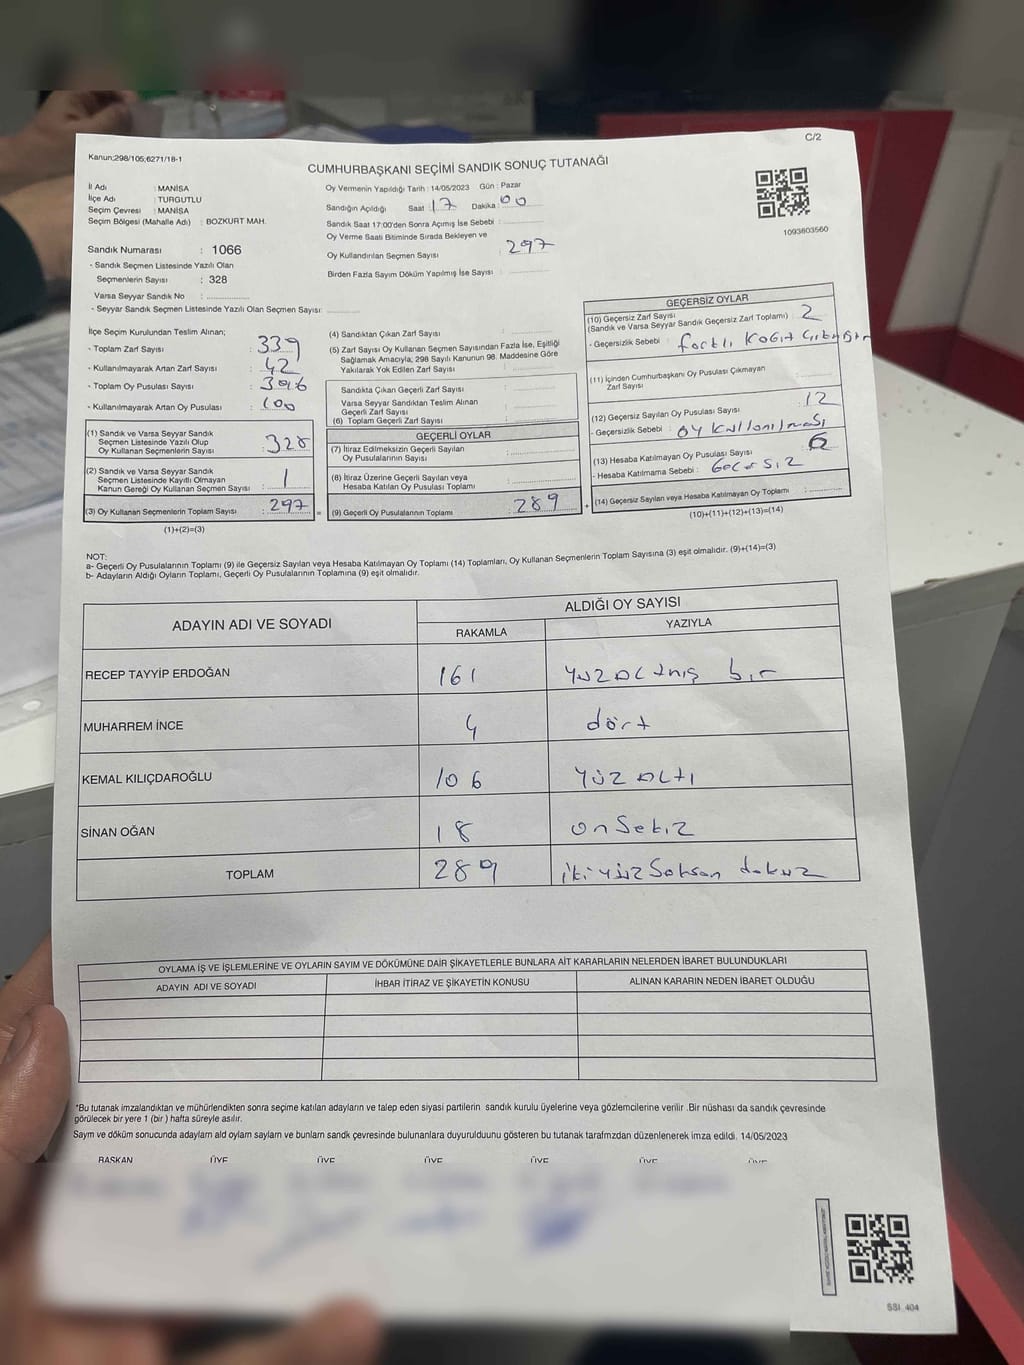 C/2
Kanun;298/105;6271/18-1
CUMHURBAŞKANI SEÇİMİ SANDIK SONUÇ TUTANAĞI
İl Adı : MANİSA
İlçe Adı : TURGUTLU
Seçim Çevresi : MANİSA
Seçim Bölgesi (Mahalle Adı) : BOZKURT MAH.
Sandık Numarası : 1066
- Sandık Seçmen Listesinde Yazılı Olan
Seçmenlerin Sayısı : 328
Varsa Seyyar Sandık No :
- Seyyar Sandık Seçmen Listesinde Yazılı Olan Seçmen Sayısı:
Oy Vermenin Yapıldığı Tarih : 14/05/2023 Gün : Pazar
Sandığın Açıldığı Saat : 17 Dakika : 00
Sandık Saat 17:00'den Sonra Açımış İse Sebebi :
Oy Verme Saati Bitiminde Sırada Bekleyen ve
Oy Kullandırılan Seçmen Sayısı : 297
Birden Fazla Sayım Döküm Yapılmış İse Sayısı :
1093603560
İlçe Seçim Kurulundan Teslim Alınan;
- Toplam Zarf Sayısı : 339
- Kullanılmayarak Artan Zarf Sayısı : 42
- Toplam Oy Pusulası Sayısı : 396
- Kullanılmayarak Artan Oy Pusulası : 100
(1) Sandık ve Varsa Seyyar Sandık
Seçmen Listesinde Yazılı Olup
Oy Kullanan Seçmenlerin Sayısı : 328
(2) Sandık ve Varsa Seyyar Sandık
Seçmen Listesinde Kayıtlı Olmayan
Kanun Gereği Oy Kullanan Seçmen Sayısı : 1
(3) Oy Kullanan Seçmenlerin Toplam Sayısı : 297 =
(1)+(2)=(3)
(4) Sandıktan Çıkan Zarf Sayısı :
(5) Zarf Sayısı Oy Kullanan Seçmen Sayısından Fazla İse, Eşitliği
Sağlamak Amacıyla, 298 Sayılı Kanunun 98. Maddesine Göre
Yakılarak Yok Edilen Zarf Sayısı :
Sandıkta Çıkan Geçerli Zarf Sayısı :
Varsa Seyyar Sandıktan Teslim Alınan
Geçerli Zarf Sayısı :
(6) Toplam Geçerli Zarf Sayısı :
GEÇERLİ OYLAR
(7) İtiraz Edilmeksizin Geçerli Sayılan
Oy Pusulalarının Sayısı :
(8) İtiraz Üzerine Geçerli Sayılan veya
Hesaba Katılan Oy Pusulası Toplamı :
(9) Geçerli Oy Pusulalarının Toplamı : 289 +
GEÇERSİZ OYLAR
(10) Geçersiz Zarf Sayısı : 2
(Sandık ve Varsa Seyyar Sandık Geçersiz Zarf Toplamı)
- Geçersizlik Sebebi : farklı Kağıt
(11) İçinden Cumhurbaşkanı Oy Pusulası Çıkmayan
Zarf Sayısı :
(12) Geçersiz Sayılan Oy Pusulası Sayısı : 12
- Geçersizlik Sebebi : oy kullanılması
(13) Hesaba Katılmayan Oy Pusulası Sayısı :
- Hesaba Katılmama Sebebi : Geçersiz
(14) Geçersiz Sayılan veya Hesaba Katılmayan Oy Toplamı :
(10)+(11)+(12)+(13)=(14)
NOT:
a- Geçerli Oy Pusulalarının Toplamı (9) ile Geçersiz Sayılan veya Hesaba Katılmayan Oy Toplamı (14) Toplamları, Oy Kullanan Seçmenlerin Toplam Sayısına (3) eşit olmalıdır. (9)+(14)=(3)
b- Adayların Aldığı Oyların Toplamı, Geçerli Oy Pusulalarının Toplamına (9) eşit olmalıdır.
ADAYIN ADI VE SOYADI ALDIĞI OY SAYISI
RAKAMLA YAZIYLA
RECEP TAYYİP ERDOĞAN 161 yüzaltmış bir
MUHARREM İNCE 4 dört
KEMAL KILIÇDAROĞLU 106 yüz altı
SİNAN OĞAN 18 onsekiz
TOPLAM 289 ikiyüzSeksan dokuz
OYLAMA İŞ VE İŞLEMLERİNE VE OYLARIN SAYIM VE DÖKÜMÜNE DAİR ŞİKAYETLERLE BUNLARA AİT KARARLARIN NELERDEN İBARET BULUNDUKLARI
ADAYIN ADI VE SOYADI İHBAR İTİRAZ VE ŞİKAYETİN KONUSU ALINAN KARARIN NEDEN İBARET OLDUĞU
*Bu tutanak imzalandıktan ve mühürlendikten sonra seçime katılan adayların ve talep eden siyasi partilerin sandık kurulu üyelerine veya gözlemcilerine verilir .Bir nüshası da sandık çevresinde
görülecek bir yere 1 (bir ) hafta süreyle asılır.
Sayım ve döküm sonucunda adaylam ald oylam saylam ve bunlam sandk çevresinde bulunanlara duyurulduunu gösteren bu tutanak tarafmzdan düzenlenerek imza edildi. 14/05/2023
BAŞKAN ÜYE ÜYE ÜYE ÜYE ÜYE ÜYE
SSI. 404